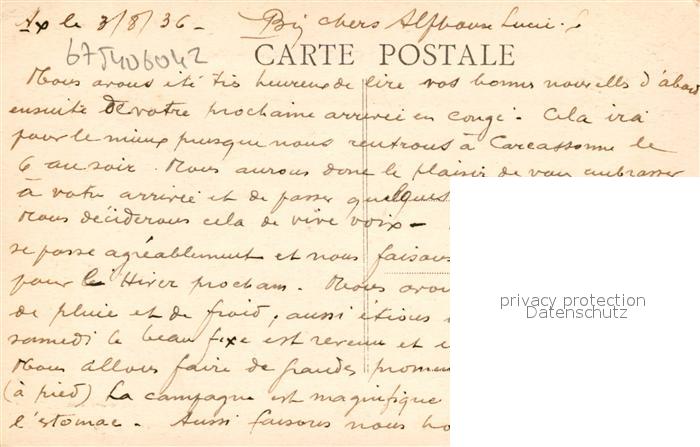 Ax le 3/8/36 - Bien chers Alphonse Lucie.
675406042
CARTE POSTALE
Nous avons été très heureux de lire vos bonnes nouvelles d'abord
ensuite de votre prochaine arrivée en congé - Cela ira
pour le mieux puisque nous rentrons à Carcassonne le
6 au soir. Nous aurons donc le plaisir de vous embrasser
à votre arrivée et de passer quelques
Nous déciderons cela de vive voix -
se passe agréablement et nous faisons
pour l'Hiver prochain. Nous avons
de pluie et de froid, aussi étions
samedi le beau fixe est revenu et
Nous allons faire de grandes promen
(à pied) La campagne est magnifique
l'estomac. Aussi faisons nous ho
privacy protection
Datenschutz